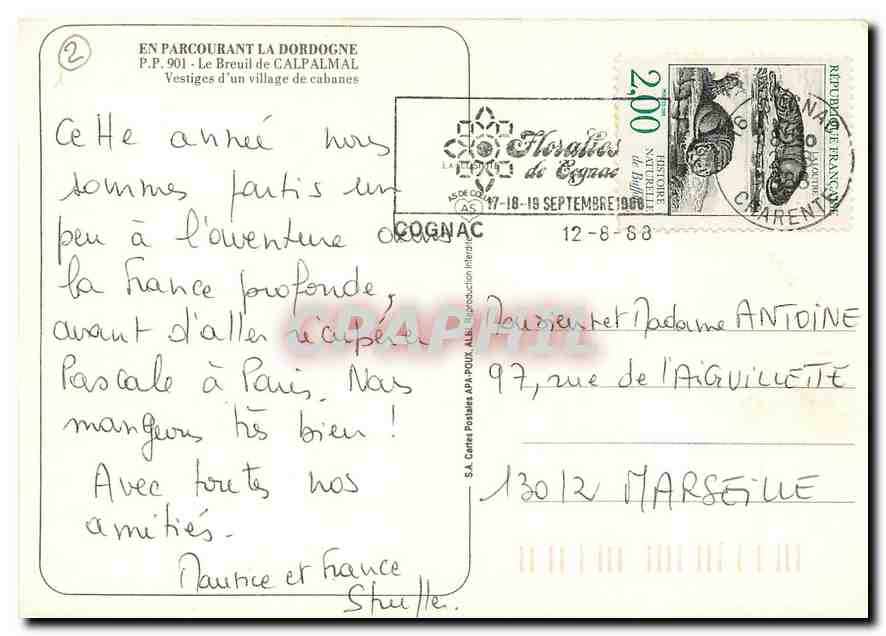 2
EN PARCOURANT LA DORDOGNE
P.P. 901 - Le Breuil de CALPALMAL
Vestiges d'un village de cabanes
Cette année nous
sommes partis un
peu à l'aventure dans
la France profonde,
avant d'aller récupérer
Pascale à Paris. Nous
mangeons très bien !
Avec toutes nos
amitiés.
Maurice et France
S.A. Cartes Postales APA-POUX, ALBI. Reproduction interdite
Floralies
de Cognac
AS DE COEUR
AS
17-18-19 SEPTEMBRE 1988
COGNAC
12-8-88
2,00
HISTOIRE
NATURELLE
de Buffon
RÉPUBLIQUE FRANÇAISE
LA LOUTRE
COGNAC
CHARENTE
CPAPHIL
Monsieur et Madame ANTOINE
97, rue de l'AIGUILLETTE
13012 MARSEILLE